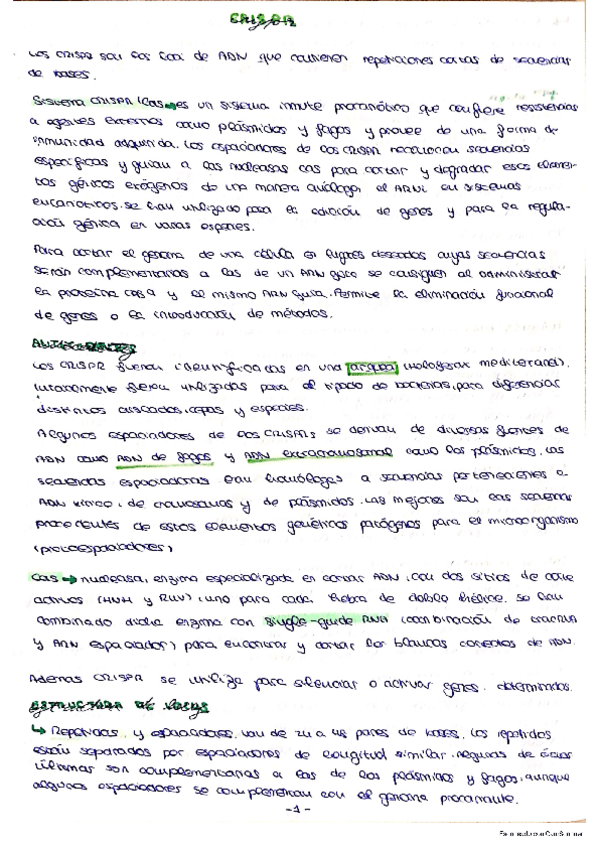 CRISPR
Los CRISPR son los loci de ADN que contienen repeticiones cortas de secuencias
de bases.
Sistema CRISPR/Cas → es un sistema inmute procariótico que confiere resistencias
a agentes externos como plásmidos y fagos y provee de una forma de
inmunidad adquirida. Los espaciadores de los CRISPR reconocen secuencias
específicas y guían a las nucleasas cas para cortar y degradar esos elemen-
tos génicos exógenos de una manera análoga al ARNi en sistemas
eucarióticos. Se han utilizado para la edición de genes y para la regula-
ción génica en varias especies.
Para cortar el genoma de una célula en lugares deseados cuyas secuencias
serán complementarias a las de un ARN guía se consiguen al administrar
la proteína cas9 y el mismo ARN guía. Permite la eliminación funcional
de genes o la introducción de métodos.
ANTECEDENTES
Los CRISPR fueron identificadas en una arquea (Haloferax mediterranei).
Inicialmente fueron utilizadas para el tipado de bacterias, para diferenciar
distintos aislados, cepas y especies.
Algunos espaciadores de los CRISPRs se derivan de diversas fuentes de
ADN como ADN de fagos y ADN extracromosomal como los plásmidos. Las
secuencias espaciadoras eran homólogas a secuencias pertenecientes a
ADN vírico, de cromosomas y de plásmidos. Las mejores son las secuencias
procedentes de estos elementos genéticos patógenos para el microorganismo
(protoespaciadores)
Cas → nucleasa, enzima especializada en cortar ADN, con dos sitios de corte
activos (HNH y RUV), uno para cada hebra de doble hélice. Se han
combinado dicha enzima con single-guide RNA (combinación de tracrRNA
y ARN espaciador) para encontrar y cortar los blancos correctos de ADN.
Además CRISPR se utiliza para silenciar o activar genes determinados.
ESTRUCTURA DE LOCUS
↳ Repeticios y espaciadores. Van de 24 a 48 pares de bases. Los repetidos
están separados por espaciadores de longitud similar. Algunas de éstas
últimas son complementarias a las de los plásmidos y fagos, aunque
algunos espaciadores se complementan con el genoma procariante.
-1-